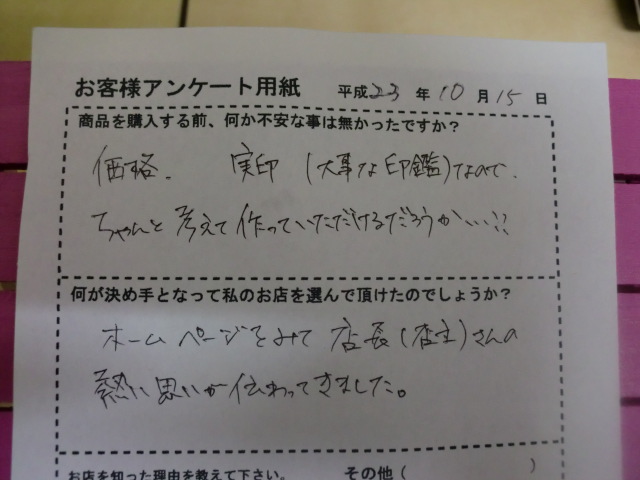 お客様アンケート用紙 平成23年10月15日
商品を購入する前、何か不安な事は無かったですか？
価格、 実印（大事な印鑑）なので、
ちゃんと考えて作っていただけるだろうか…!!
何が決め手となって私のお店を選んで頂けたのでしょうか？
ホームページをみて店長（店主）さんの
熱い思いが伝わってきました。
お店を知った理由を教えて下さい。 その他（ ）